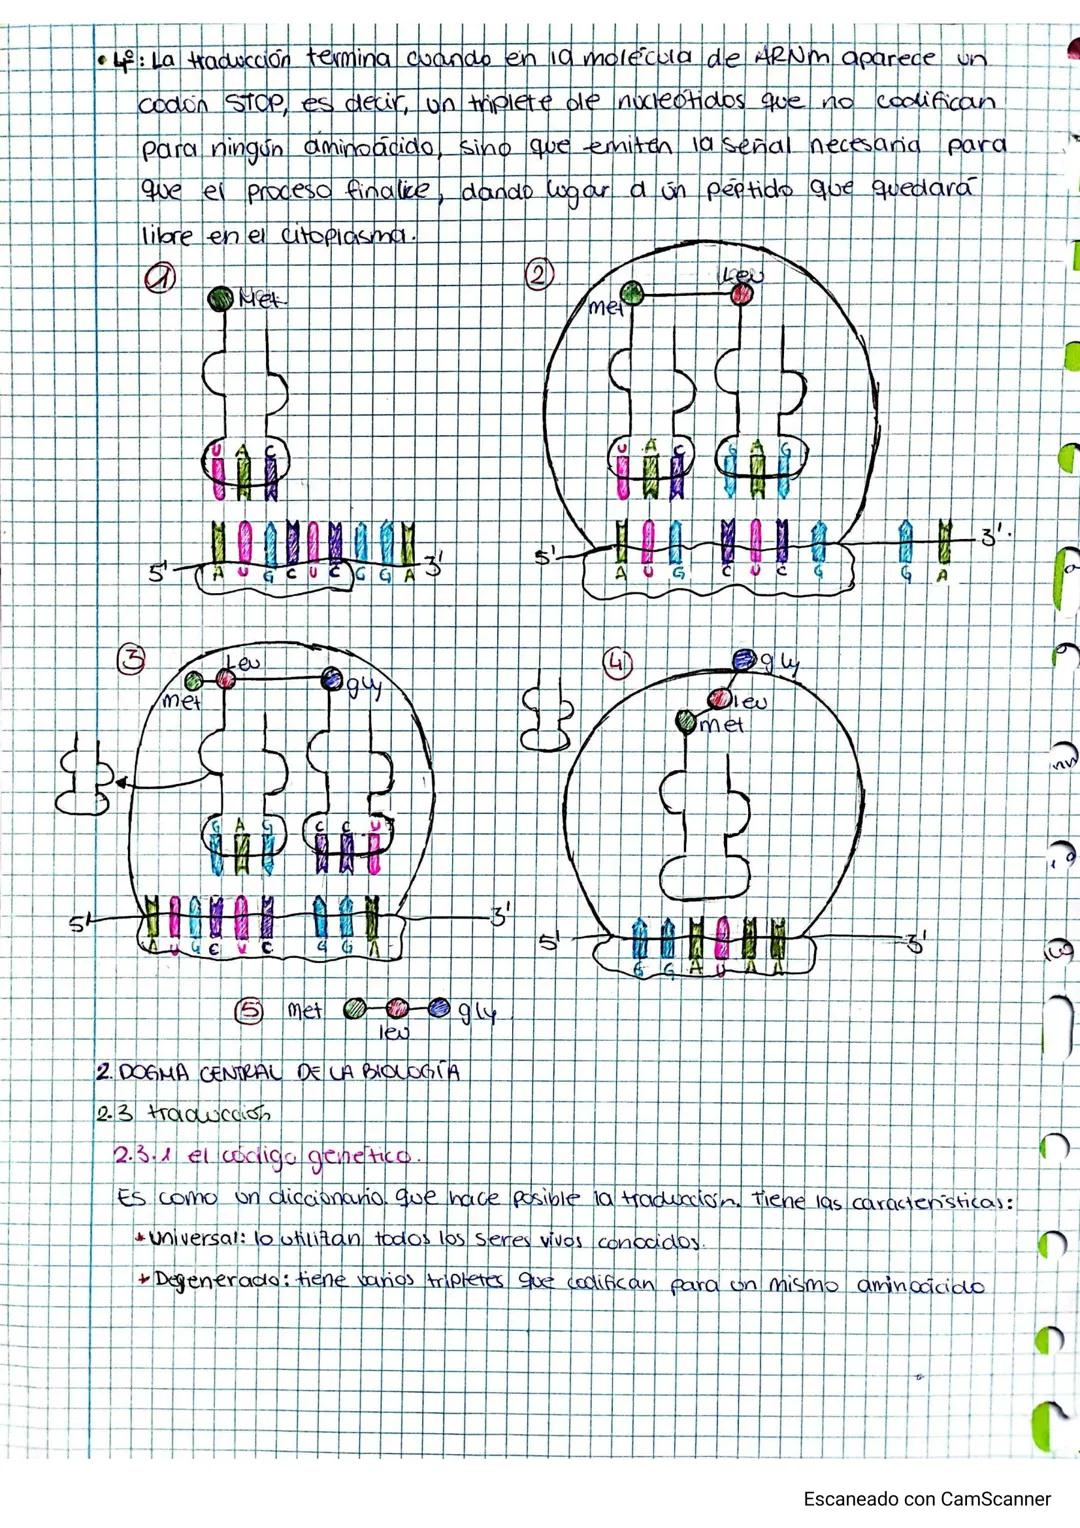 • 4º: La traducción termina cuando en la molécula de ARNm aparece un
codón STOP, es decir, un triplete de nucleótidos que no codifican
para ningún aminoácido, sino que emiten la señal necesaria para
que el proceso finalice, dando lugar a un péptido que quedará
libre en el citoplasma.
1
Met
U A C
5' A U G C U C G G A 3'
2
met Leu
U A C G A G
5' A U G C U C G G A 3'
3
met Leu gly
G A G C C U
5' A U G C U C G G A 3'
4
gly
leu
met
5' G G A U A A 3'
5 met leu gly
2. DOGMA CENTRAL DE LA BIOLOGÍA
2.3 traducción
2.3.1 el código genético.
Es como un diccionario que hace posible la traducción. Tiene las características:
* Universal: lo utilizan todos los seres vivos conocidos.
* Degenerado: tiene varios tripletes que codifican para un mismo aminoácido
Escaneado con CamScanner